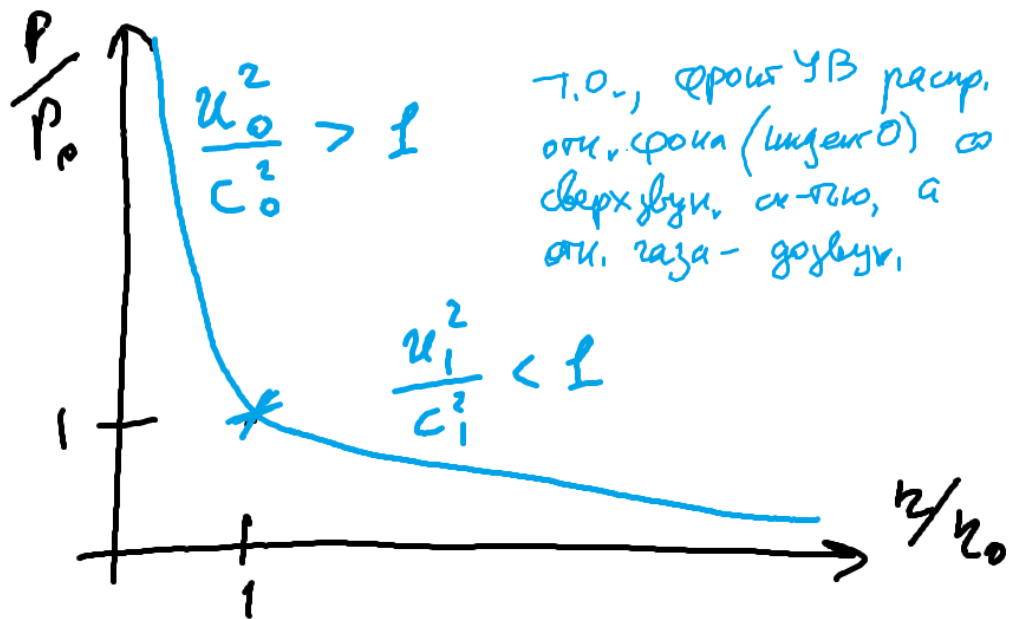 P/P₀
u₀²/c₀² > 1
т.о., фронт УВ распр.
отн. фона (индекс 0) со
сверхзвук. ск-тью, а
отн. газа – дозвук.
u₁²/c₁² < 1
1
η/η₀
1